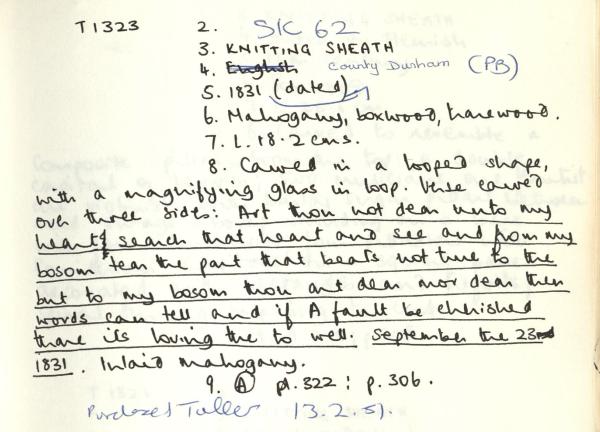 T1323 2. SK 62
3. KNITTING SHEATH
4. English County Durham (PB)
5. 1831 (dated)
6. Mahogany, boxwood, harewood.
7. L. 18.2 cms.
8. Carved in a looped shape,
with a magnifying glass in loop. Verse carved
over three sides: Art thou not dear unto my
heart & search that heart and see and from my
bosom tear the part that beats not true to the
but to my bosom thou art dear mor dear then
words can tell and if A fault be cherished
thare its loving the to well. September the 23rd
1831. Inlaid mahogany.
9. A pl. 322 : p. 306.
Purchased 13.2.51.